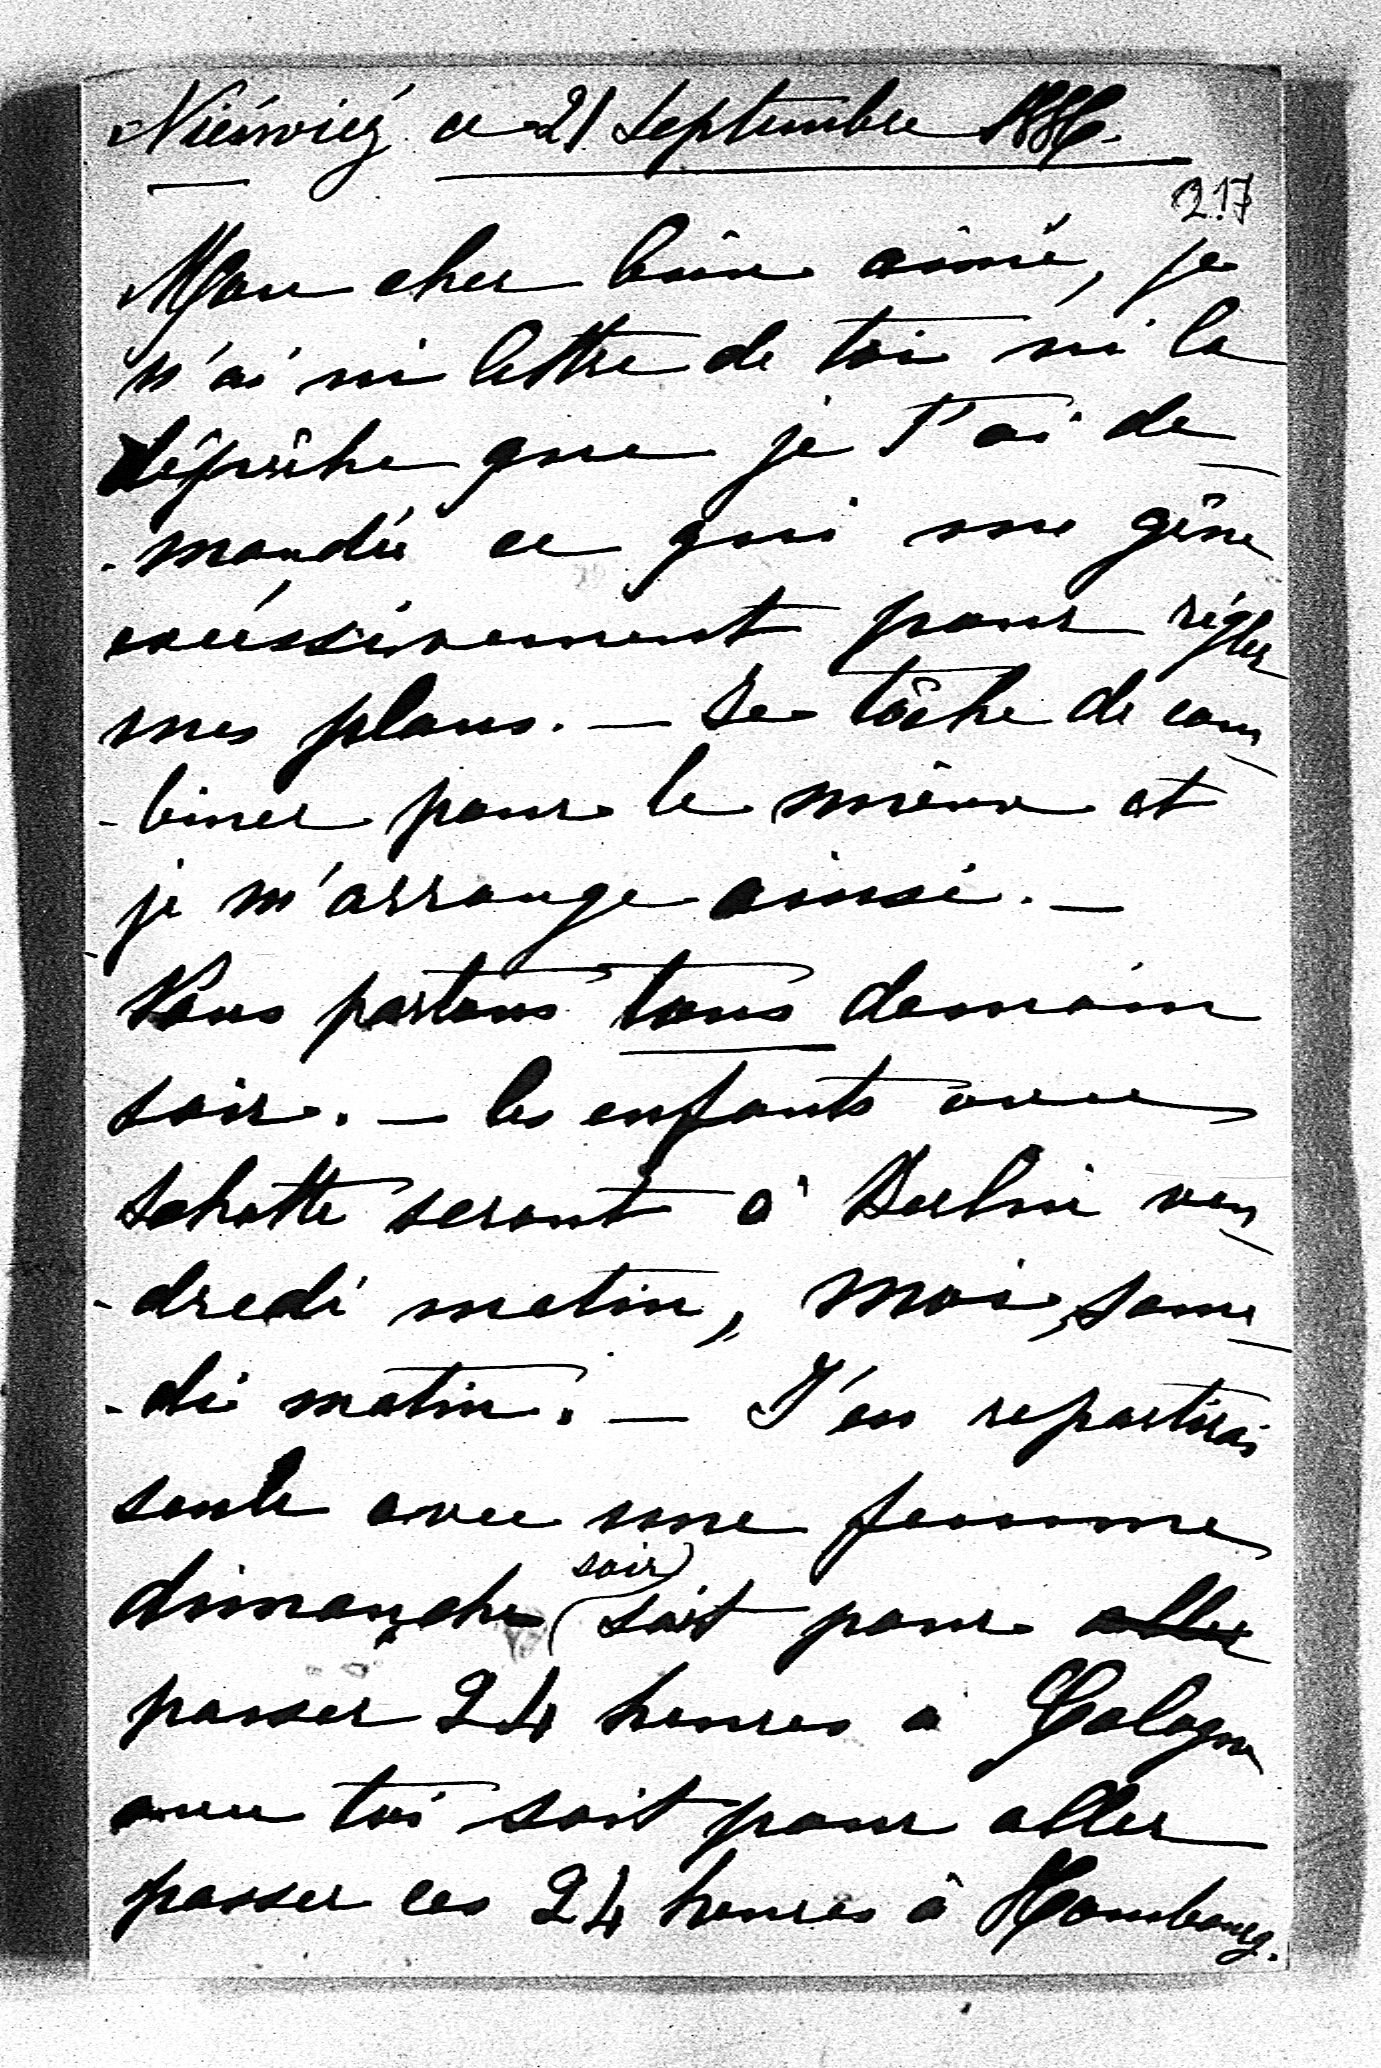 Nieśwież ce 21 Septembre 1886.
217
Mon cher bien aimé, je
n'ai ni lettre de toi ni la
dépêche que je t'ai de
-mandée ce qui me gêne
excéssivement pour régler
mes plans. — Je tâche de com
-biner pour le mieux et
je m'arrange ainsi. —
Nous partons tous demain
soir. — les enfants avec
Schotte seront à Berlin ven
-dredi matin, moi, same
-di matin. — J'en repartirai
seule avec une femme
dimanche soir soit pour aller
passer 24 heures à Cologne
avec toi soit pour aller
passer ces 24 heures à Hombourg.